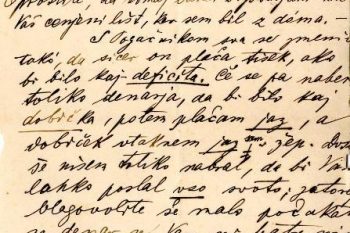 Vaš cenjeni list, ker sem bil z doma. –
S Pogačnikom sva se zmenila
tako, da sicer on plača tisek, ako
bi bilo kaj deficita. Če se pa nabere
toliko denarja, da bi bilo kaj
dobička, potem plačam jaz, a
dobiček vtaknem jaz v žep.
še nisem toliko nabral, da bi Vam
lahko poslal vso svoto; zatorej
blagovolite še malo počakati